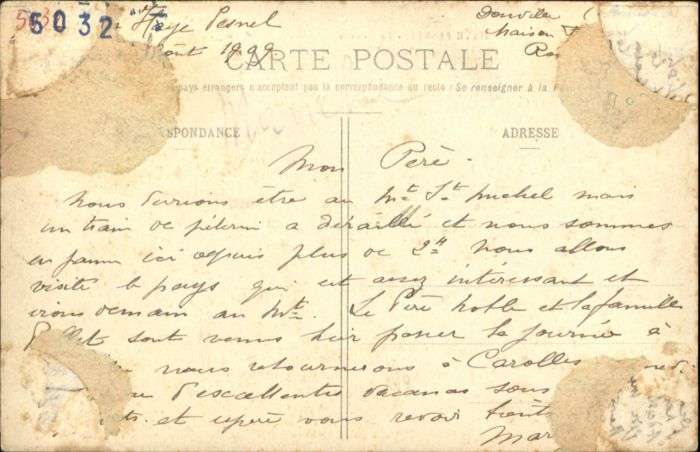 5032
Haye Pesnel
Août 1909
Donville
Maison
CARTE POSTALE
pays étrangers n'acceptent pas la correspondance au recto (Se renseigner à la P
SPONDANCE
ADRESSE
Mon Père
Nous devrions être au Mt St Michel mais
un train de pèlerins a déraillé et nous sommes
en panne ici depuis plus de 2h Nous allons
visité le pays qui est assez intéressant et
irons demain au Mt. Le Père et la famille
sont venus hier passer la journée à
nous retournerons à Carolles
d'excellentes vacances sous
et espère vous revoir
Mar